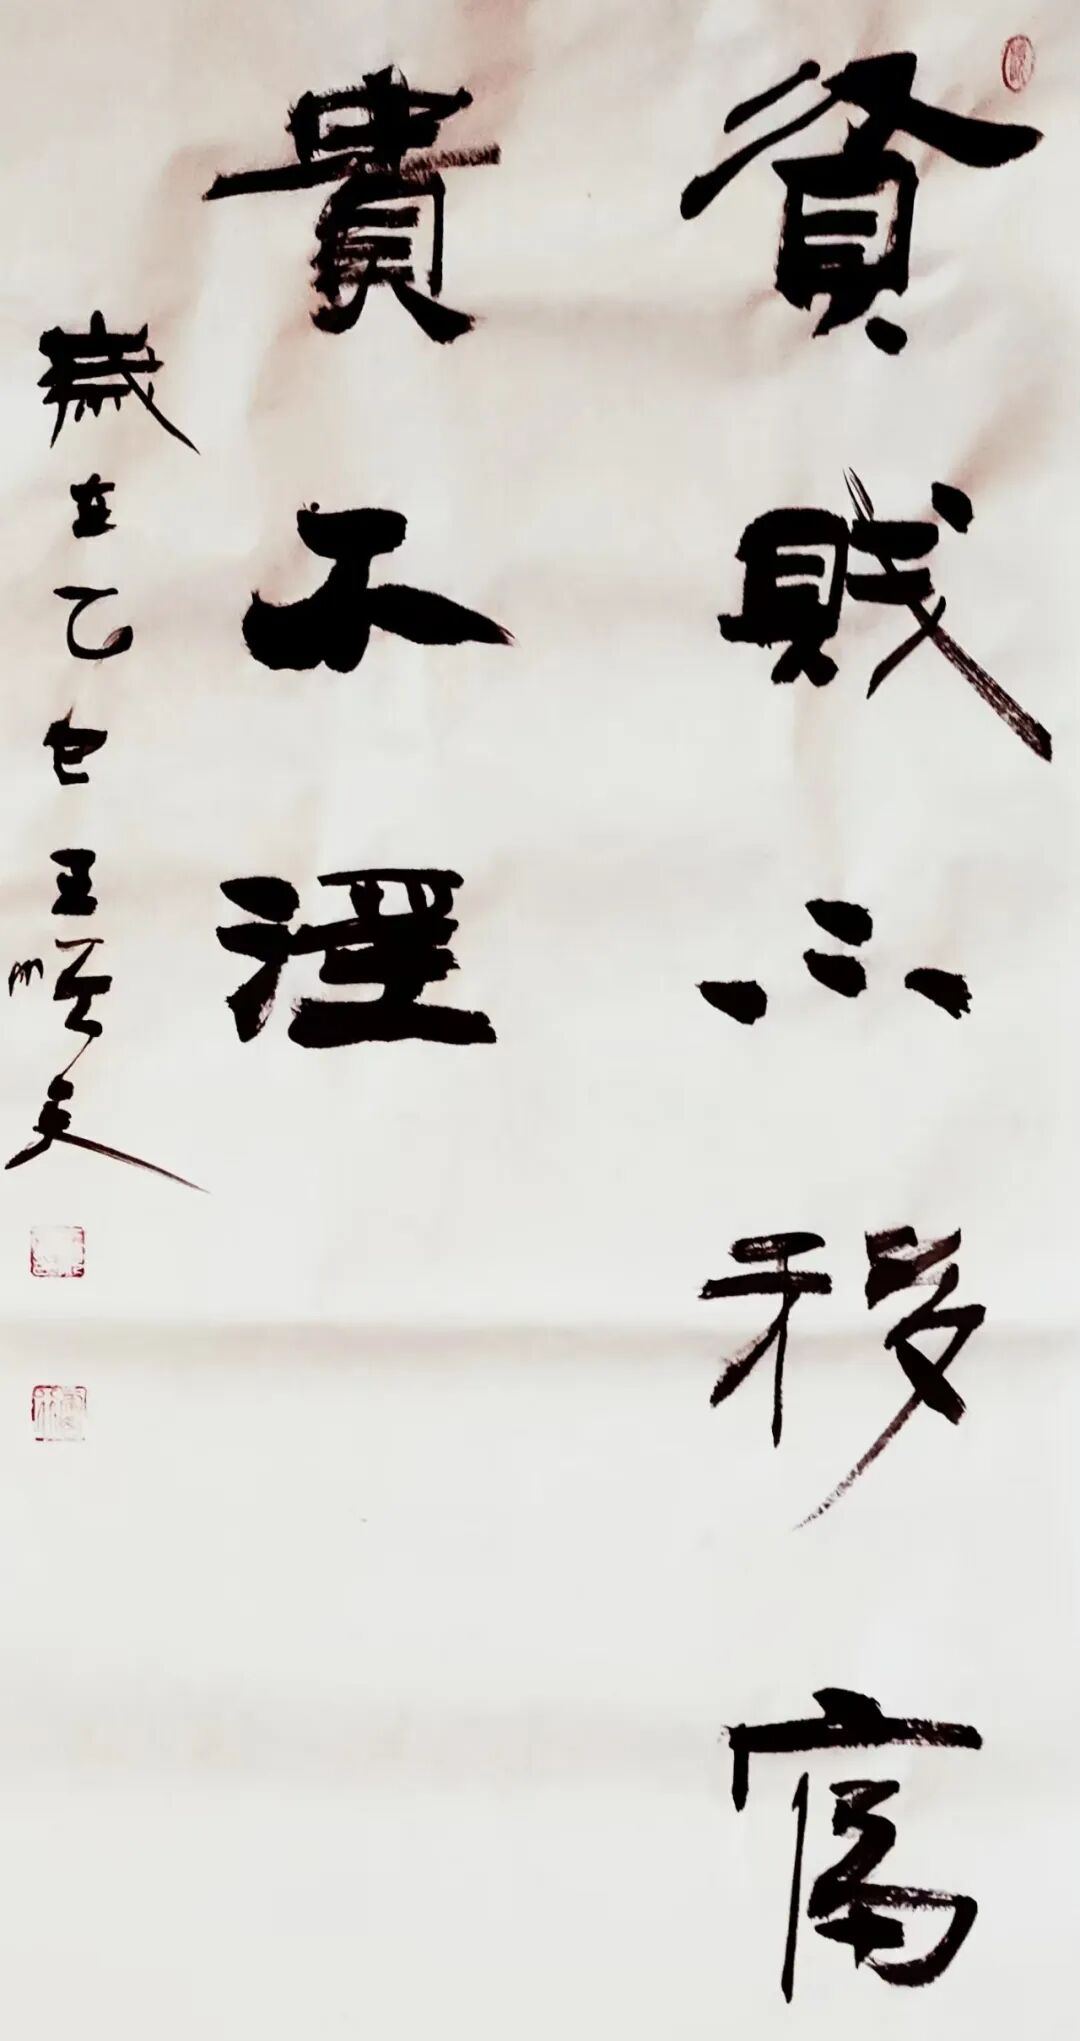 貧賤不移富
貴不淫
歲在乙巳王